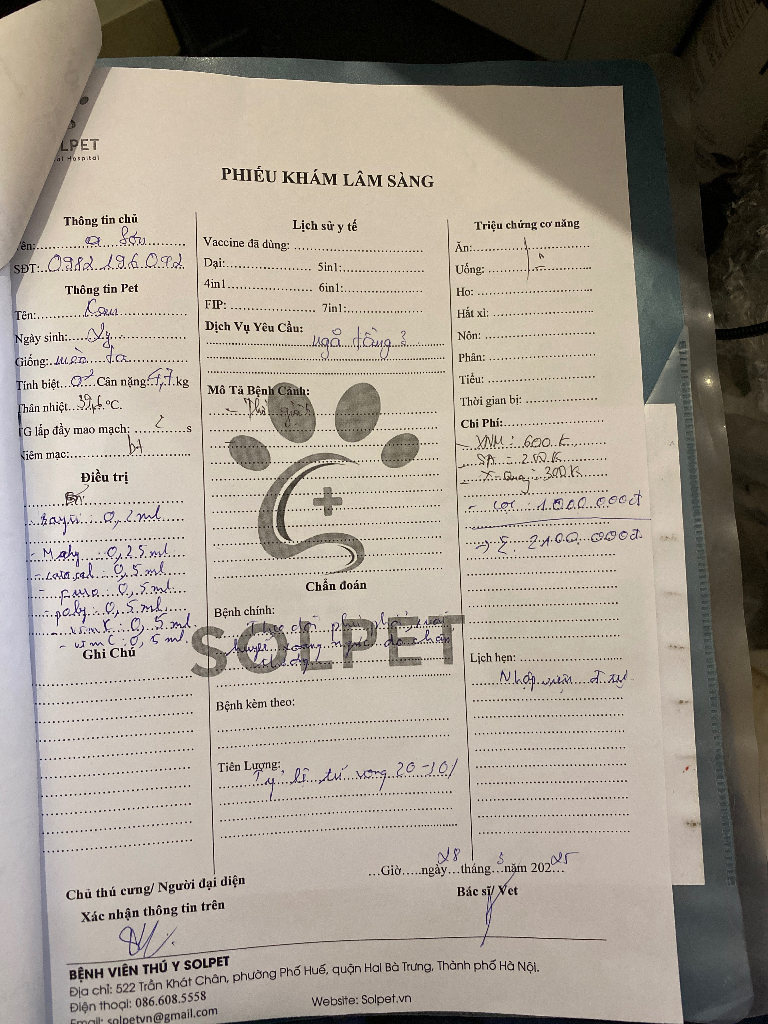 LPET
al Hospital
PHIẾU KHÁM LÂM SÀNG
Thông tin chủ
ên:
SĐT: 0982 196 092
Thông tin Pet
Tên:
Ngày sinh: 2y
Giống: mèo ta
Tính biệt ♂ Cân nặng: 4,7 kg
Thân nhiệt 39,6 °C.
G lấp đầy mao mạch: 2 s
Niêm mạc: bt
Điều trị
: 0,2ml
: 0,25ml
: 0,5ml
: 0,5ml
: 0,5ml
- vtm K: 0,5ml
- vtm C: 0,5 ml
Ghi Chú
Lịch sử y tế
Vaccine đã dùng:
Dại: 5in1:
4in1 6in1:
FIP: 7in1:
Dịch Vụ Yêu Cầu:
ngã tầng 3
Mô Tả Bệnh Cảnh:
- Thở
Chẩn đoán
Bệnh chính:
Theo dõi
SOLPET
Bệnh kèm theo:
Tiên Lượng:
Tỷ lệ tử vong 20-
Triệu chứng cơ năng
Ăn:
Uống:
Ho:
Hắt xì:
Nôn:
Phân:
Tiểu:
Thời gian bị:
Chi Phí:
XNM: 600K
SA - 200K
X-Quang: 300K
- cọc: 1.000.000đ
=> Σ: 2.100.000đ
Lịch hẹn:
Nhập viện đ.trị
…Giờ…..ngày 28 tháng 3 năm 2025
Chủ thú cưng/ Người đại diện
Xác nhận thông tin trên
Bác sĩ/ Vet
BỆNH VIỆN THÚ Y SOLPET
Địa chỉ: 522 Trần Khát Chân, phường Phố Huế, quận Hai Bà Trưng, Thành phố Hà Nội.
Điện thoại: 086.608.5558
Website: Solpet.vn
Email: solpetvn@gmail.com